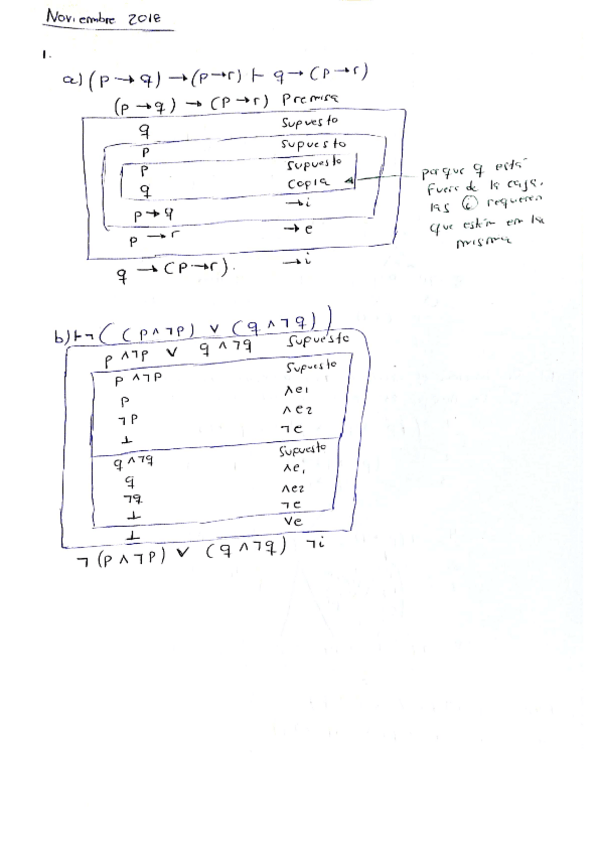 Noviembre 2018
1.
a) (p → q) → (p→r) ⊢ q → (p→r)
(p→q) → (p→r) Premisa
q Supuesto
p Supuesto
p Supuesto
q Copia
p→q →i
p→r →e
q → (p→r). →i
porque q está
fuera de la caja.
las requieren
que estén en la
misma
b) ⊢ ¬((p∧¬p) ∨ (q∧¬q))
p∧¬p ∨ q∧¬q Supuesto
p∧¬p Supuesto
p ∧e1
¬p ∧e2
⊥ ¬e
q∧¬q Supuesto
q ∧e1
¬q ∧e2
⊥ ¬e
⊥ ∨e
¬(p∧¬p) ∨ (q∧¬q) ¬i